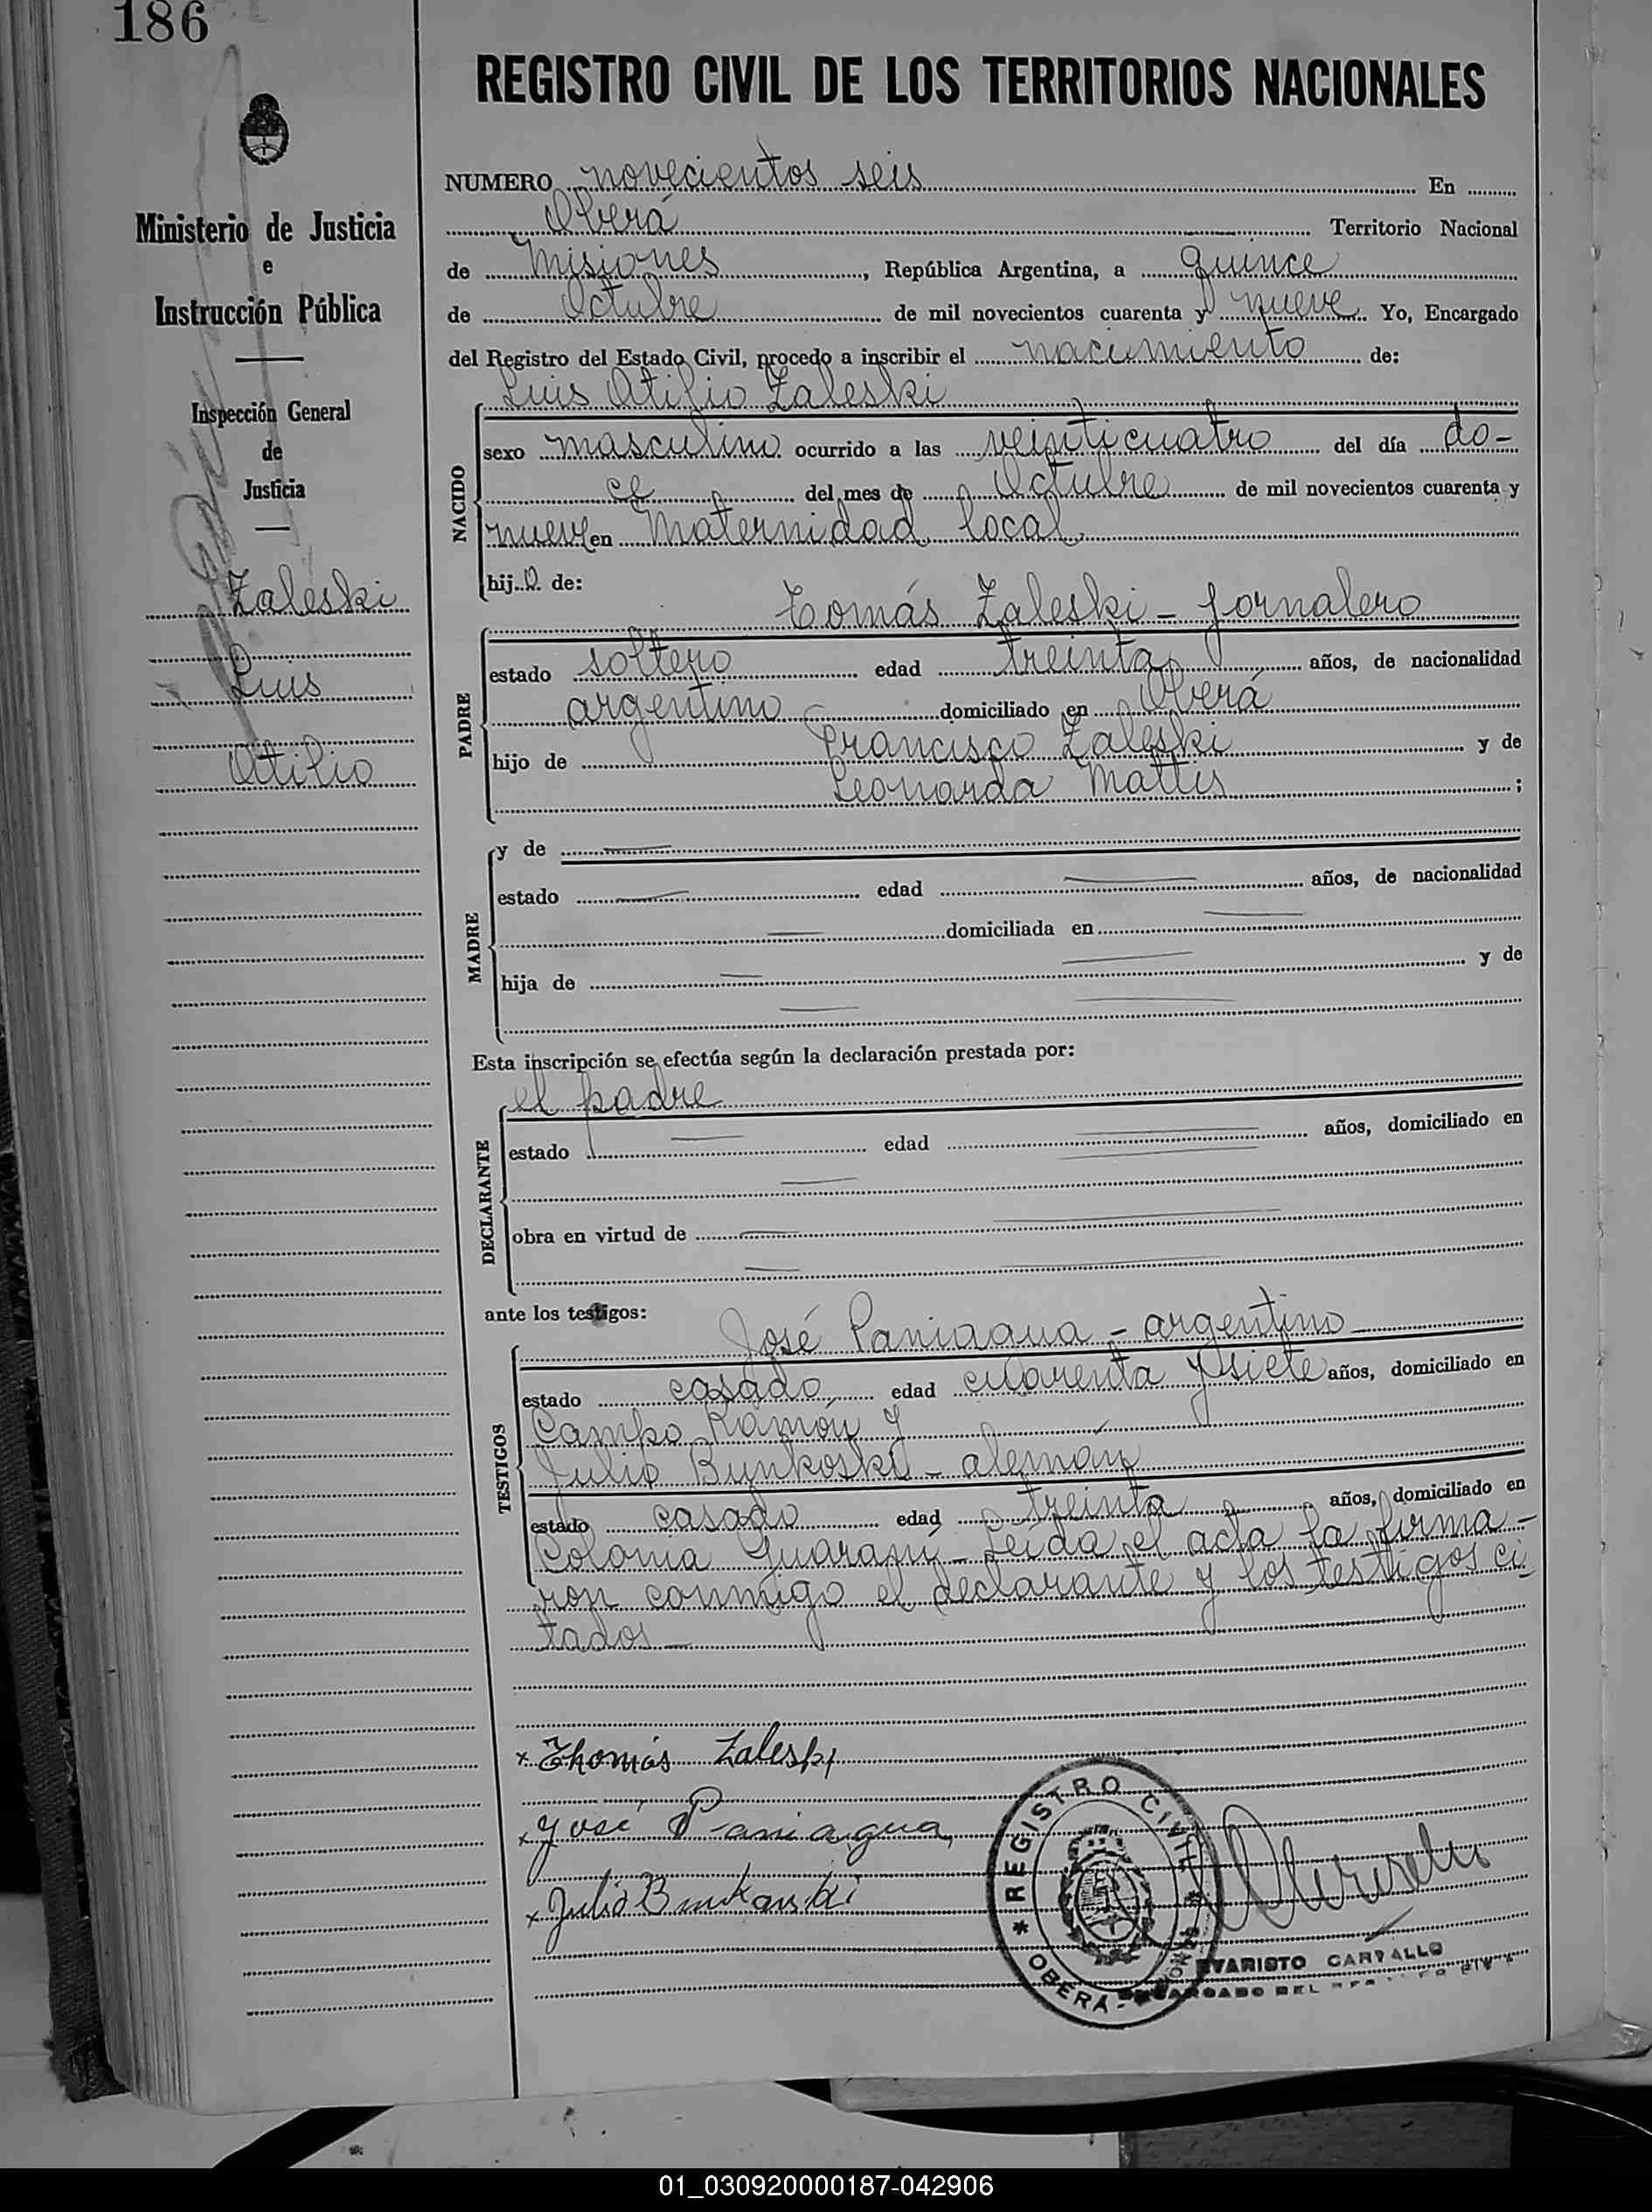 186
REGISTRO CIVIL DE LOS TERRITORIOS NACIONALES
Ministerio de Justicia
e
Instrucción Pública
Inspección General
de
Justicia
Zaleski
Luis
Atilio
NUMERO novecientos seis En
Oberá Territorio Nacional
de Misiones, República Argentina, a quince
de Octubre de mil novecientos cuarenta y nueve Yo, Encargado
del Registro del Estado Civil, procedo a inscribir el nacimiento de:
Luis Atilio Zaleski
NACIDO
sexo masculino ocurrido a las veinticuatro del día do-
ce del mes de Octubre de mil novecientos cuarenta y
nueve en Maternidad local.
hijo de:
Tomás Zaleski - jornalero
PADRE
estado soltero edad treinta años, de nacionalidad
argentino domiciliado en Oberá
hijo de Francisco Zaleski y de
Leonarda Mattis ;
MADRE
y de
estado edad años, de nacionalidad
domiciliada en
hija de y de
Esta inscripción se efectúa según la declaración prestada por:
el padre
DECLARANTE
estado edad años, domiciliado en
obra en virtud de
ante los testigos:
José Paniagua - argentino
TESTIGOS
estado casado edad cuarenta y siete años, domiciliado en
Campo Ramón y
Julio Bunkoski - alemán
estado casado edad treinta años, domiciliado en
Colonia Guaraní - Leída el acta la firma-
ron conmigo el declarante y los testigos ci-
tados -
x Thomás Zaleski
x José Paniagua
x Julio
REGISTRO CIVIL
OBERÁ - MISIONES
EVARISTO CARVALLO
ENCARGADO DEL REGISTRO CIVIL
01_030920000187-042906